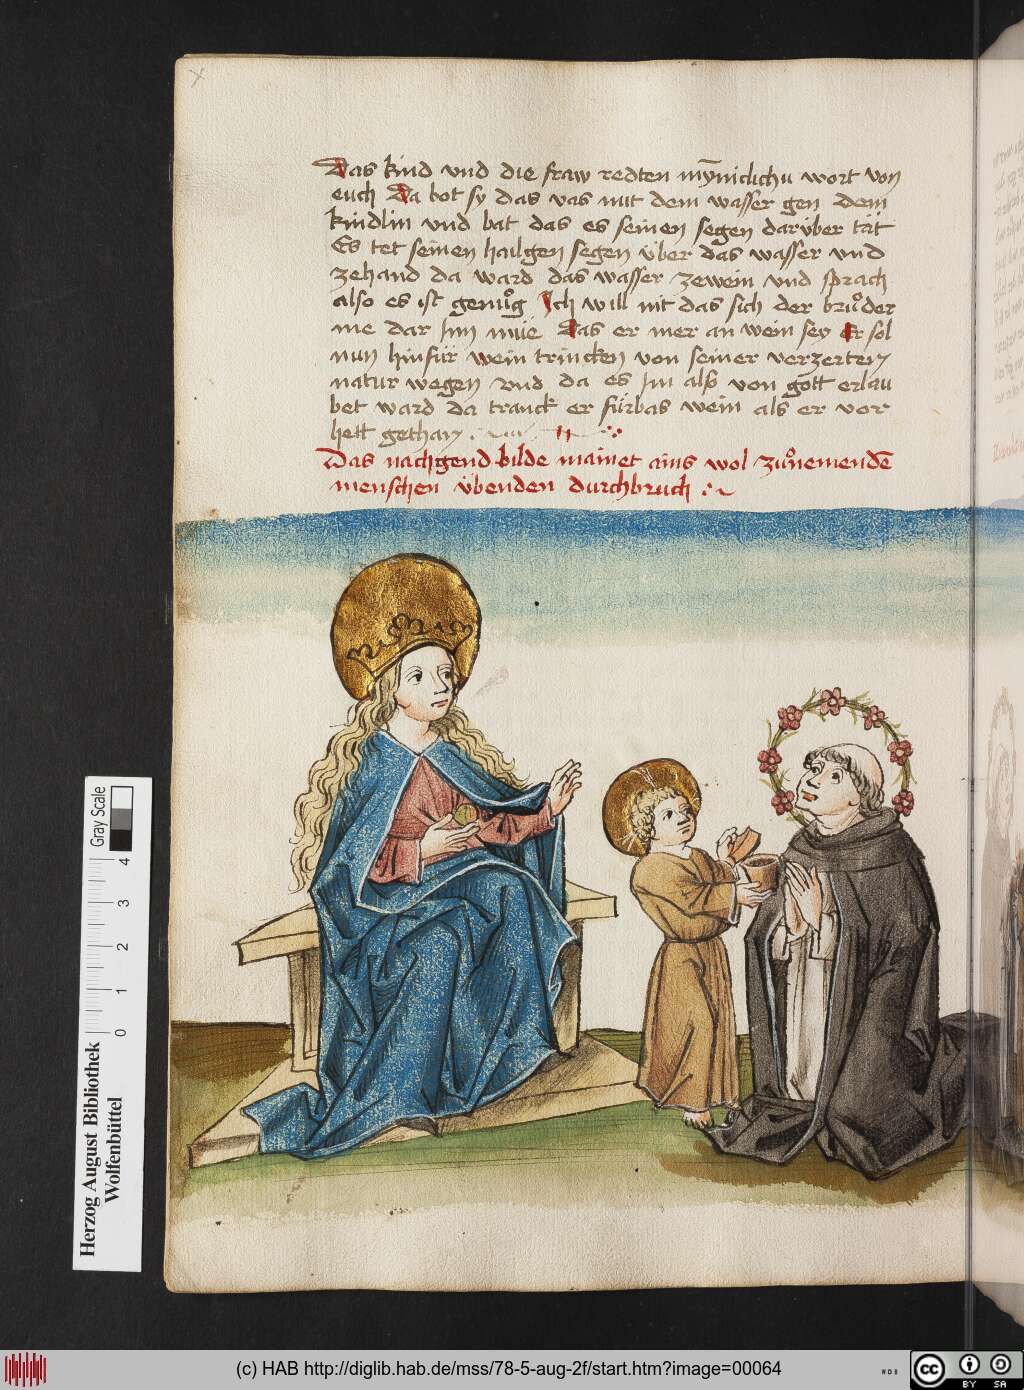 Das kind vnd die fraw redten mȳniclichu wort von
euch Da bot sy das vas mit dem wasser gen dem
kindlin vnd bat das es seinen segen darüber tät
Es tet seinen hailgen segen über das wasser vnd
zehand da ward das wasser zewein vnd sprach
also es ist genuͦg Ich will nit das sich der bruͦder
me dar Inn müie Das er mer an wein sey er sol
nun hinfür wein trincken von seiner verzerten
natur wegen vnd da es Im alß von gott erlau
bet ward da tranck er fürbas wein als er vor
hett gethan
Das nachgend bilde mainet ains wol zuͦnemende
menschen übenden durchbruch
Gray Scale
4
3
2
1
0
Herzog August Bibliothek
Wolfenbüttel
(c) HAB http://diglib.hab.de/mss/78-5-aug-2f/start.htm?image=00064
WDB
cc
BY SA